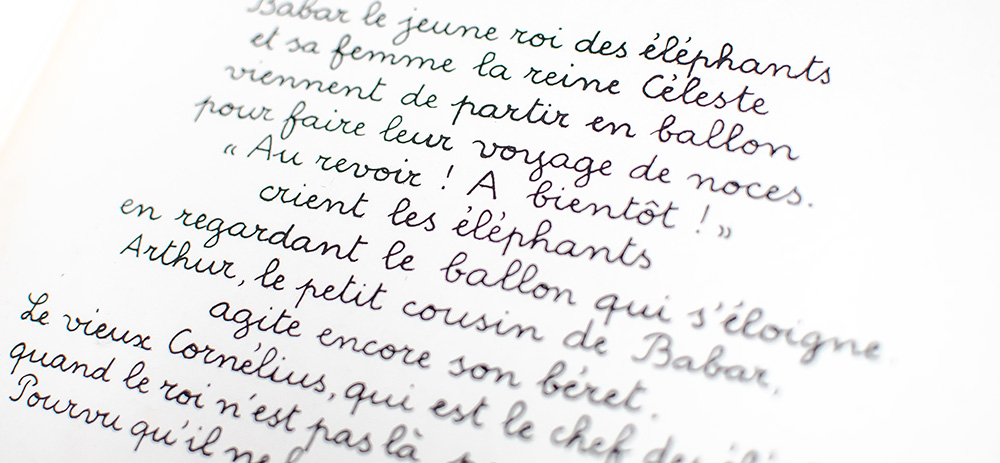 Babar le jeune roi des éléphants
et sa femme la reine Céleste
viennent de partir en ballon
pour faire leur voyage de noces.
« Au revoir ! A bientôt ! »
crient les éléphants
en regardant le ballon qui s'éloigne.
Arthur, le petit cousin de Babar,
agite encore son béret.
Le vieux Cornélius, qui est le chef des
quand le roi n'est pas là
Pourvu qu'il ne